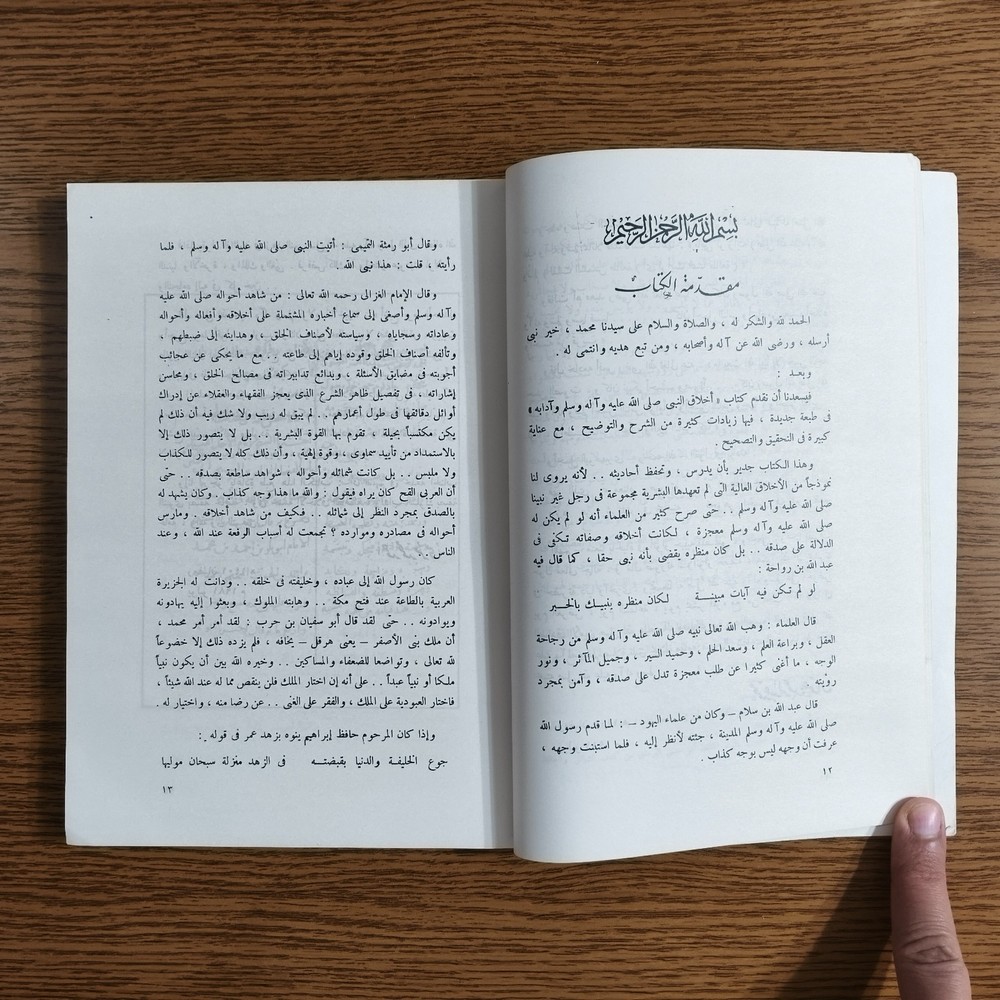 بسم الله الرحمن الرحيم
مقدمة الكتاب
الحمد لله والشكر له ، والصلاة والسلام على سيدنا محمد ، خير نبى
أرسله ، ورضى الله عن آله وأصحابه ، ومن تبع هديه وانتمى له .
وبعد :
فيسعدنا أن نقدم كتاب « أخلاق النبى صلى الله عليه وآله وسلم وآدابه »
فى طبعة جديدة ، فيها زيادات كثيرة من الشرح والتوضيح ، مع عناية
كبيرة فى التحقيق والتصحيح .
وهذا الكتاب جدير بأن يدرس ، وتحفظ أحاديثه . . لأنه يروى لنا
نموذجاً من الأخلاق العالية التى لم تعهدها البشرية مجموعة فى رجل غير نبينا
صلى الله عليه وآله وسلم . . حتى صرح كثير من العلماء أنه لو لم يكن له
صلى الله عليه وآله وسلم معجزة ، لكانت أخلاقه وصفاته تكفى فى
الدلالة على صدقه . . بل كان منظره يقضى بأنه نبى حقا ، كما قال فيه
عبد الله بن رواحة :
لو لم تكن فيه آيات مبينة لكان منظره ينبيك بالخبر
قال العلماء : وهب الله تعالى نبيه صلى الله عليه وآله وسلم من رجاحة
العقل ، وبراعة العلم ، وسعد الحلم ، وحميد السير ، وجميل المآثر ، ونور
الوجه ، ما أغنى كثيرا عن طلب معجزة تدل على صدقه ، وآمن بمجرد
رؤيته .
قال عبد الله بن سلام – وكان من علماء اليهود – : لما قدم رسول الله
صلى الله عليه وآله وسلم المدينة ، جئته لأنظر إليه ، فلما استبنت وجهه ،
عرفت أن وجهه ليس بوجه كذاب .
١٢
وقال أبو رمثة التميمى : أتيت النبى صلى الله عليه وآله وسلم ، فلما
رأيته ، قلت : هذا نبى الله .
وقال الإمام الغزالى رحمه الله تعالى : من شاهد أحواله صلى الله عليه
وآله وسلم وأصغى إلى سماع أخباره المشتملة على أخلاقه وأفعاله وأحواله
وعاداته وسجاياه ، وسياسته لأصناف الخلق ، وهدايته إلى ضبطهم ،
وتألفه أصناف الخلق وقوده إياهم إلى طاعته . . مع ما يحكى عن عجائب
أجوبته فى مضايق الأسئلة ، وبدائع تدابيراته فى مصالح الخلق ، ومحاسن
إشاراته ، فى تفصيل ظاهر الشرع الذى يعجز الفقهاء والعقلاء عن إدراك
أوائل دقائقها فى طول أعمارهم . . لم يبق له ريب ولا شك فيه أن ذلك لم
يكن مكتسباً بحيلة ، تقوم بها القوة البشرية . . بل لا يتصور ذلك إلا
بالاستمداد من تأييد سماوى ، وقوة إلهية ، وأن ذلك كله لا يتصور للكذاب
ولا ملبس . . بل كانت شمائله وأحواله ، شواهد ساطعة بصدقه . . حتى
أن العربى القح كان يراه فيقول : والله ما هذا وجه كذاب . وكان يشهد له
بالصدق بمجرد النظر إلى شمائله . . فكيف من شاهد أخلاقه . ومارس
أحواله فى مصادره وموارده ؟ تجمعت له أسباب الرفعة عند الله ، وعند
الناس . .
كان رسول الله إلى عباده ، وخليفته فى خلقه . . ودانت له الجزيرة
العربية بالطاعة عند فتح مكة . . وهابته الملوك ، وبعثوا إليه يهادونه
ويوادونه . . حتى لقد قال أبو سفيان بن حرب : لقد أمر أمر محمد ،
أن ملك بنى الأصفر – يعنى هرقل – يخافه ، فلم يزده ذلك إلا خضوعاً
لله تعالى ، وتواضعا للضعفاء والمساكين . . وخيره الله بين أن يكون نبياً
ملكا أو نبياً عبداً . . على أنه إن اختار الملك فلن ينقص مما له عند الله شيئاً ،
فاختار العبودية على الملك ، والفقر على الغنى . . عن رضا منه ، واختيار له .
وإذا كان المرحوم حافظ إبراهيم ينوه بزهد عمر فى قوله :
جوع الخليفة والدنيا بقبضته فى الزهد منزلة سبحان موليها
١٣